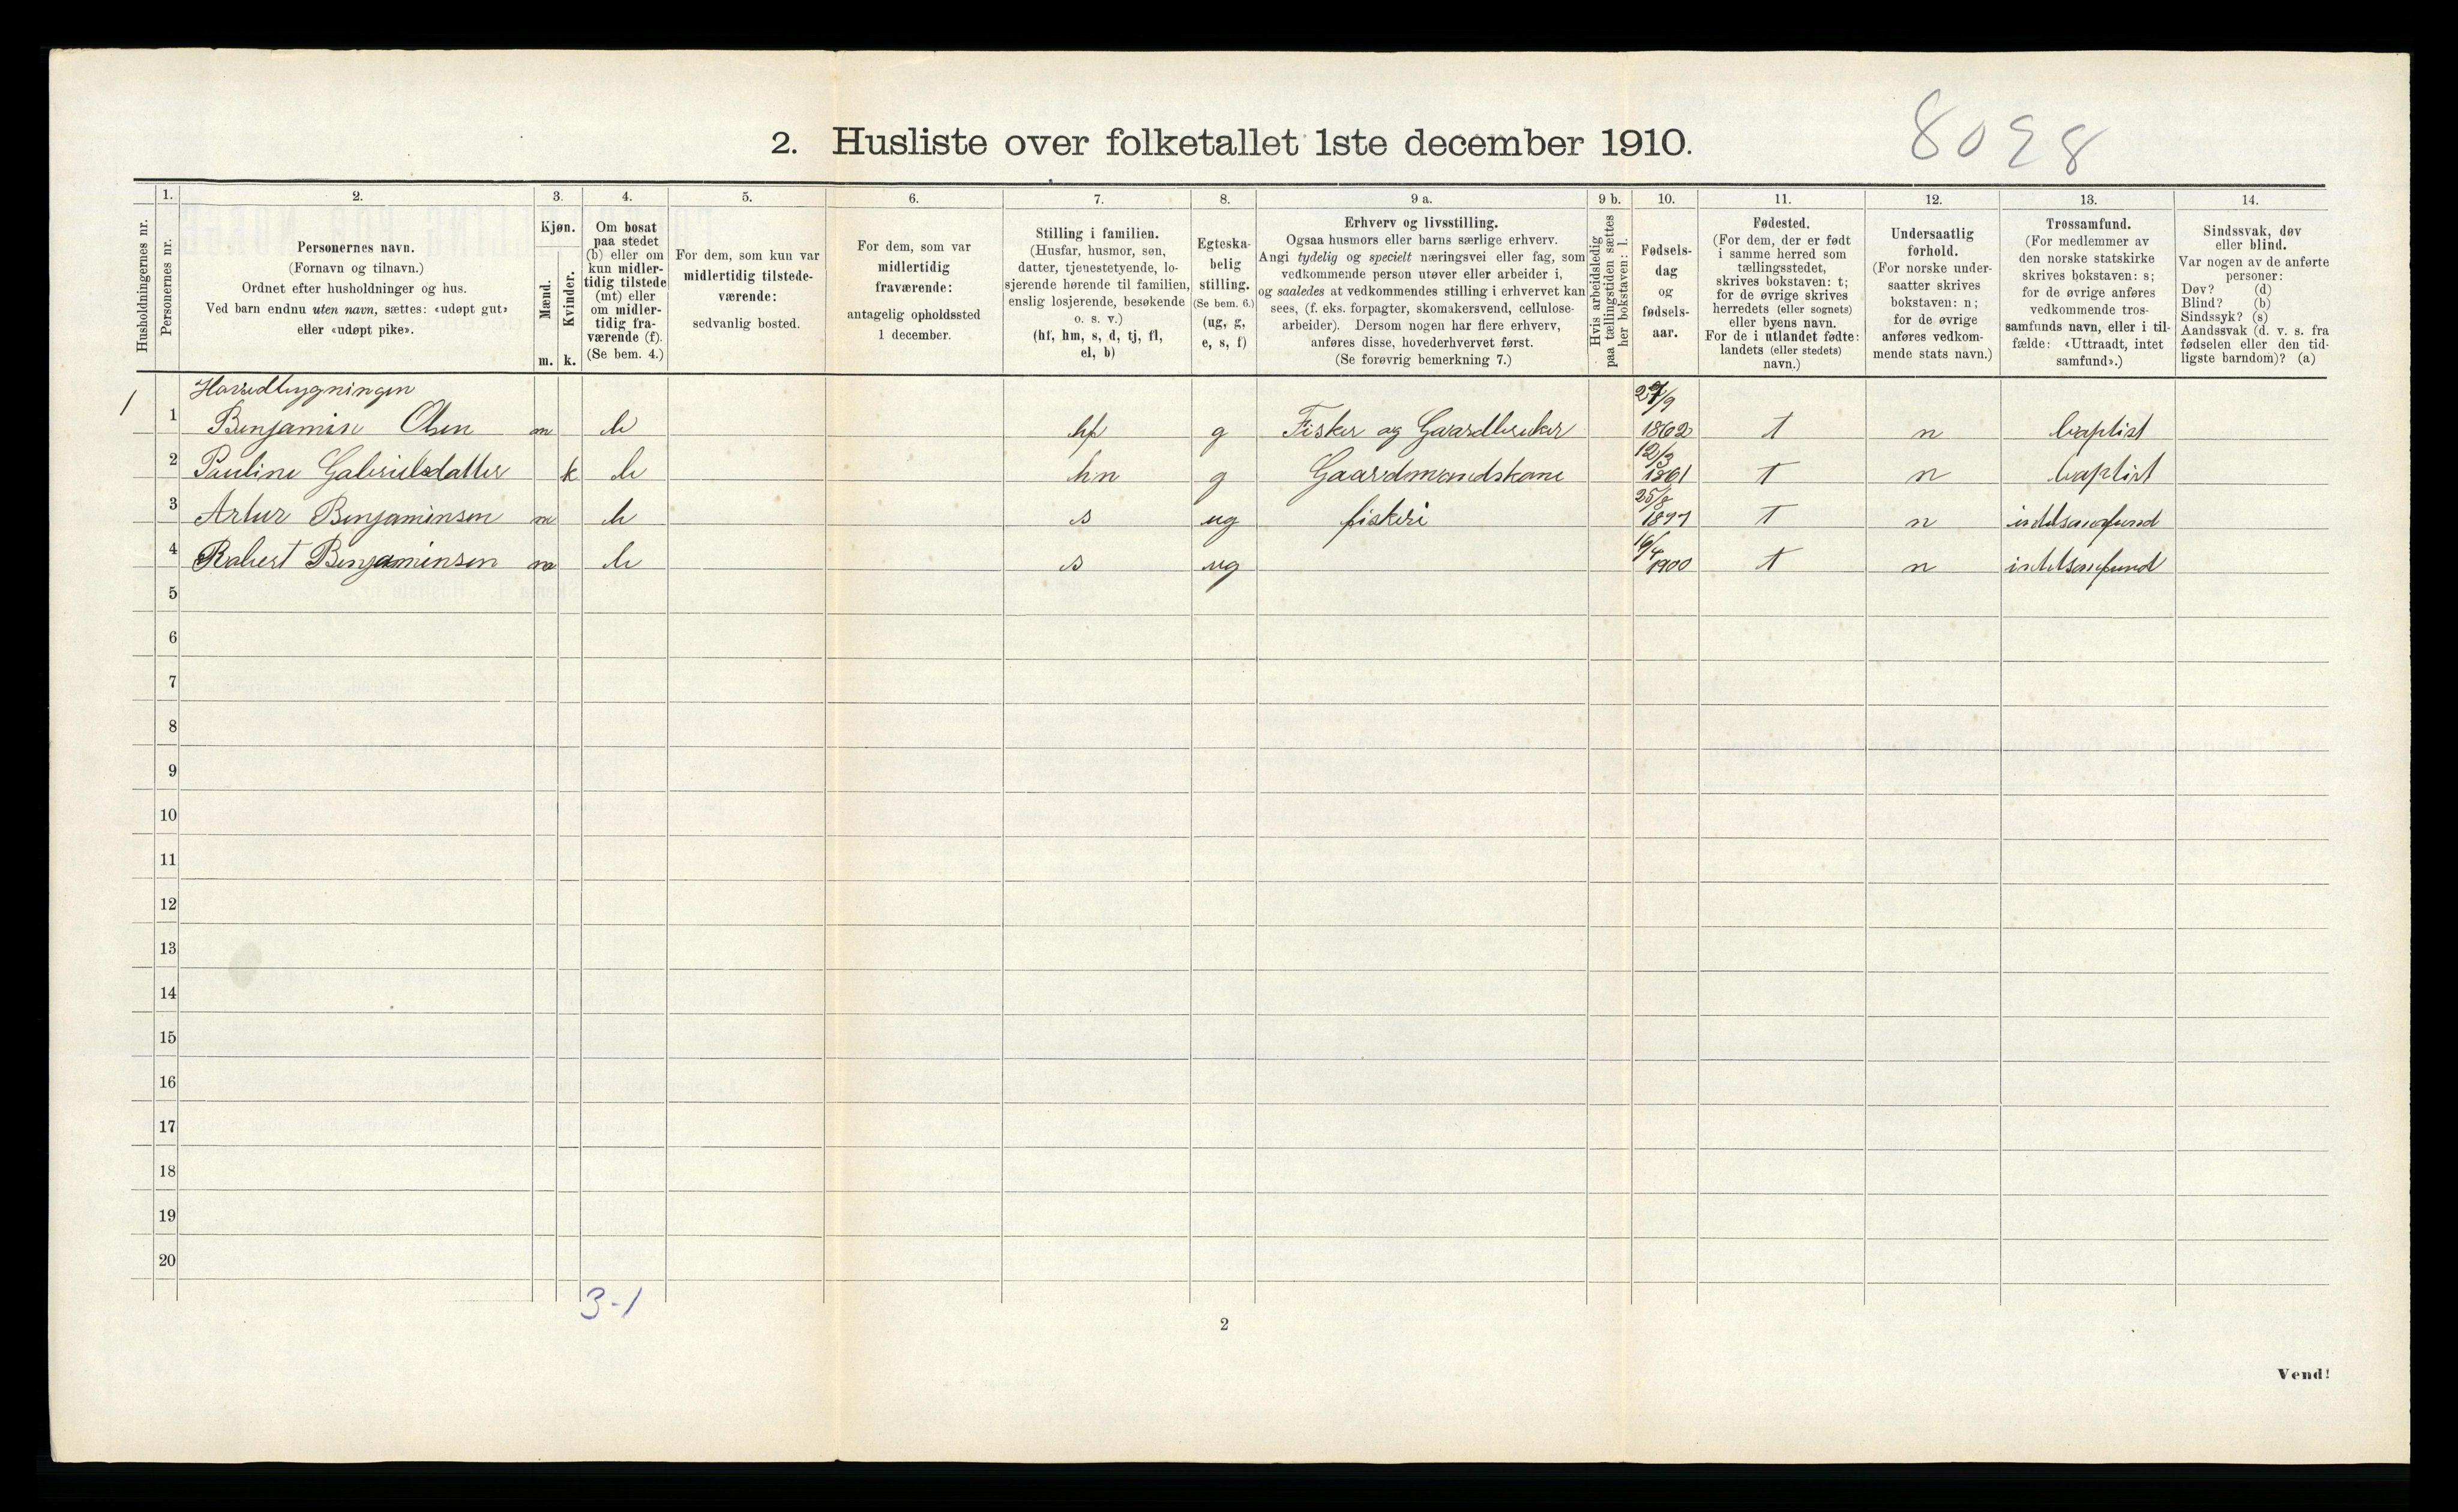 2. Husliste over folketallet 1ste december 1910.
8098
Husholdningernes nr.
1. Personernes nr.
2. Personernes navn. (Fornavn og tilnavn.) Ordnet efter husholdninger og hus. Ved barn endnu uten navn, sættes: «udøpt gut» eller «udøpt pike».
3. Kjøn. Mænd. m. Kvinder. k.
4. Om bosat paa stedet (b) eller om kun midlertidig tilstede (mt) eller om midlertidig fraværende (f). (Se bem. 4.)
5. For dem, som kun var midlertidig tilstedeværende: sedvanlig bosted.
6. For dem, som var midlertidig fraværende: antagelig opholdssted 1 december.
7. Stilling i familien. (Husfar, husmor, søn, datter, tjenestetyende, losjerende hørende til familien, enslig losjerende, besøkende o. s. v.) (hf, hm, s, d, tj, fl, el, b)
8. Egteskabelig stilling. (Se bem. 6.) (ug, g, e, s, f)
9 a. Erhverv og livsstilling. Ogsaa husmors eller barns særlige erhverv. Angi tydelig og specielt næringsvei eller fag, som vedkommende person utøver eller arbeider i, og saaledes at vedkommendes stilling i erhvervet kan sees, (f. eks. forpagter, skomakersvend, cellulosearbeider). Dersom nogen har flere erhverv, anføres disse, hovederhvervet først. (Se forøvrig bemerkning 7.)
9 b. Hvis arbeidsledig paa tællingstiden sættes her bokstaven: l.
10. Fødselsdag og fødselsaar.
11. Fødested. (For dem, der er født i samme herred som tællingsstedet, skrives bokstaven: t; for de øvrige skrives herredets (eller sognets) eller byens navn. For de i utlandet fødte: landets (eller stedets) navn.)
12. Undersaatlig forhold. (For norske undersaatter skrives bokstaven: n; for de øvrige anføres vedkommende stats navn.)
13. Trossamfund. (For medlemmer av den norske statskirke skrives bokstaven: s; for de øvrige anføres vedkommende trossamfunds navn, eller i tilfælde: «Uttraadt, intet samfund».)
14. Sindssvak, døv eller blind. Var nogen av de anførte personer: Døv? (d) Blind? (b) Sindssyk? (s) Aandssvak (d. v. s. fra fødselen eller den tidligste barndom)? (a)
Hovedbygningen
1 1 Benjamin Olsen m b hf g Fisker og Gaardbruker /9 1862 t n baptist
2 Pauline Gabrielsdatter k b hm g Gaardmandskone 12/3 1861 t n baptist
3 Artur Benjaminsen m b s ug fiskeri 25/8 1897 t n intetsamfund
4 Robert Benjaminsen m b s ug 16/4 1900 t n intetsamfund
5
6
7
8
9
10
11
12
13
14
15
16
17
18
19
20
3-1
2
Vend!